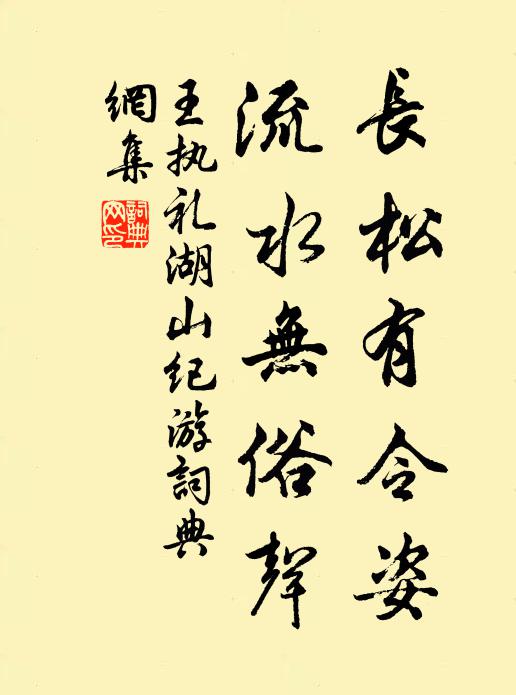 長松有令姿
流水無俗聲
王执礼湖山纪游詞典
網集
詞典網印